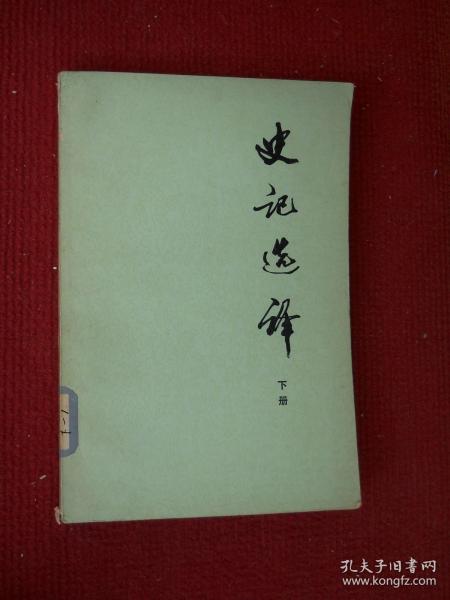 史记选译
下册
孔夫子旧书网
www.kongfz.com